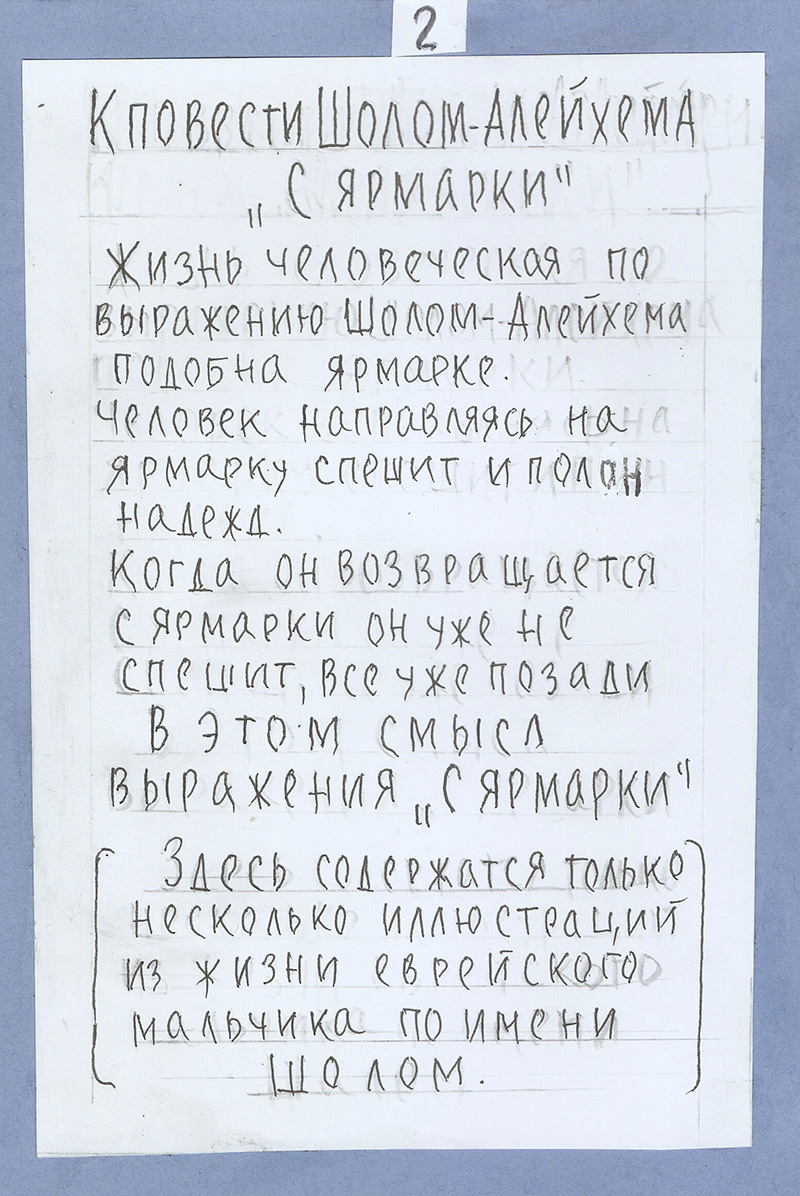 2
К повести Шолом-Алейхема
„С ярмарки“
Жизнь человеческая по
выражению Шолом-Алейхема
подобна ярмарке.
Человек направляясь на
ярмарку спешит и полон
надежд.
Когда он возвращается
с ярмарки он уже не
спешит, все уже позади
В этом смысл
выражения „С ярмарки“
(Здесь содержатся только
несколько иллюстраций
из жизни еврейского
мальчика по имени
Шолом.)